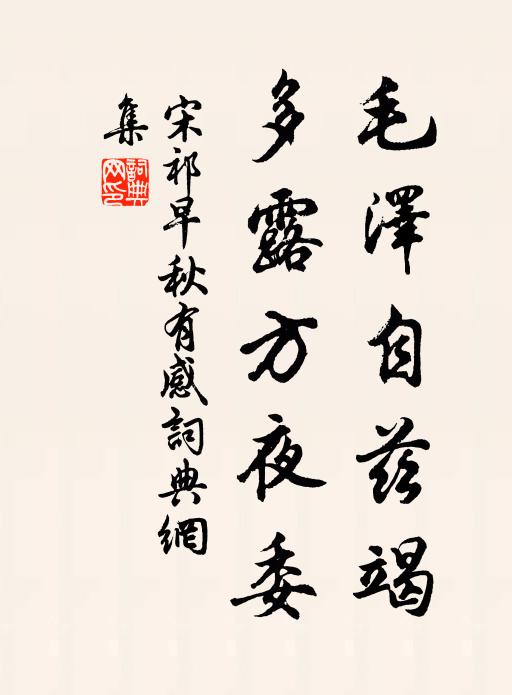 毛澤自茲竭
多露方夜委
宋祁早秋有感詞典網
集
詞典
網印